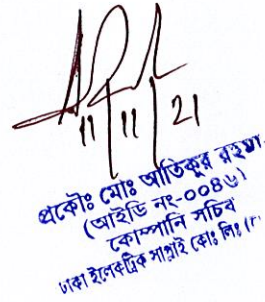 11 11 21
প্রকৌঃ মোঃ আতিকুর রহমা
(আইডি নং-০০৪৬)
কোম্পানি সচিব
ঢাকা ইলেকট্রিক সাপ্লাই কোঃ লিঃ